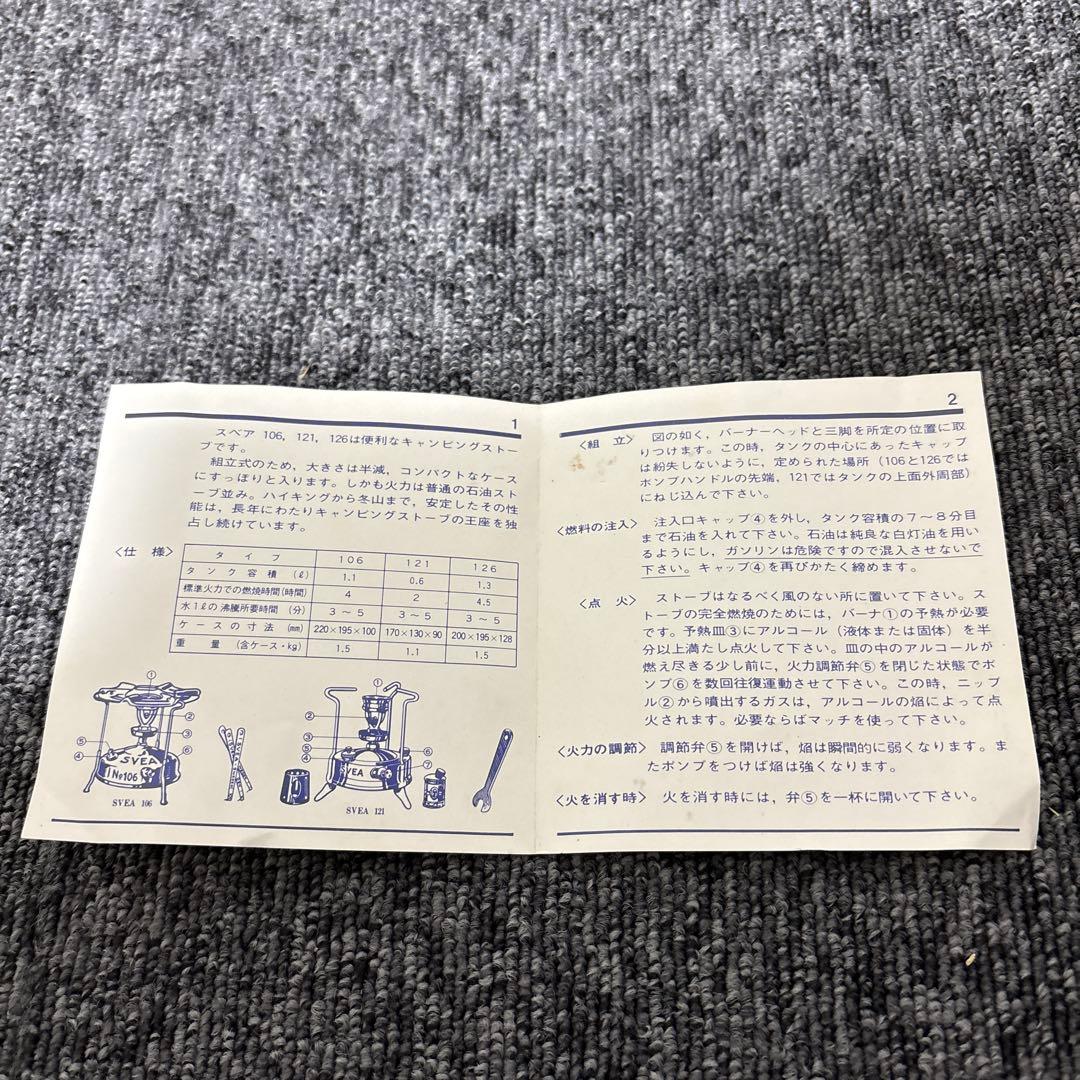 1
スベア 106, 121, 126は便利なキャンピングストー
ブです。
組立式のため, 大きさは半減, コンパクトなケース
にすっぽりと入ります。しかも火力は普通の石油スト
ーブ並み。ハイキングから冬山まで, 安定したその性
能は, 長年にわたりキャンピングストーブの王座を独
占し続けています。
〈仕 様〉
タイプ 106 121 126
タンク容積 (ℓ) 1.1 0.6 1.3
標準火力での燃焼時間(時間) 4 2 4.5
水1ℓの沸騰所要時間 (分) 3～5 3～5 3～5
ケースの寸法 (mm) 220×195×100 170×130×90 200×195×128
重量 (含ケース・kg) 1.5 1.1 1.5
① ② ③ ⑥ ⑤ ④
SVEA
Nº106
SVEA 106
① ② ③ ⑤ ④ ⑥ ⑦
SVEA
SVEA 121
2
〈組 立〉 図の如く, バーナーヘッドと三脚を所定の位置に取
りつけます。この時, タンクの中心にあったキャップ
は紛失しないように, 定められた場所 (106と126では
ポンプハンドルの先端, 121ではタンクの上面外周部)
にねじ込んで下さい。
〈燃料の注入〉 注入口キャップ④を外し, タンク容積の7～8分目
まで石油を入れて下さい。石油は純良な白灯油を用い
るようにし, ガソリンは危険ですので混入させないで
下さい。キャップ④を再びかたく締めます。
〈点 火〉 ストーブはなるべく風のない所に置いて下さい。ス
トーブの完全燃焼のためには, バーナ①の予熱が必要
です。予熱皿③にアルコール (液体または固体) を半
分以上満たし点火して下さい。皿の中のアルコールが
燃え尽きる少し前に, 火力調節弁⑤を閉じた状態でポ
ンプ⑥を数回往復運動させて下さい。この時, ニップ
ル②から噴出するガスは, アルコールの焔によって点
火されます。必要ならばマッチを使って下さい。
〈火力の調節〉 調節弁⑤を開けば, 焔は瞬間的に弱くなります。ま
たポンプをつけば焔は強くなります。
〈火を消す時〉 火を消す時には, 弁⑤を一杯に開いて下さい。